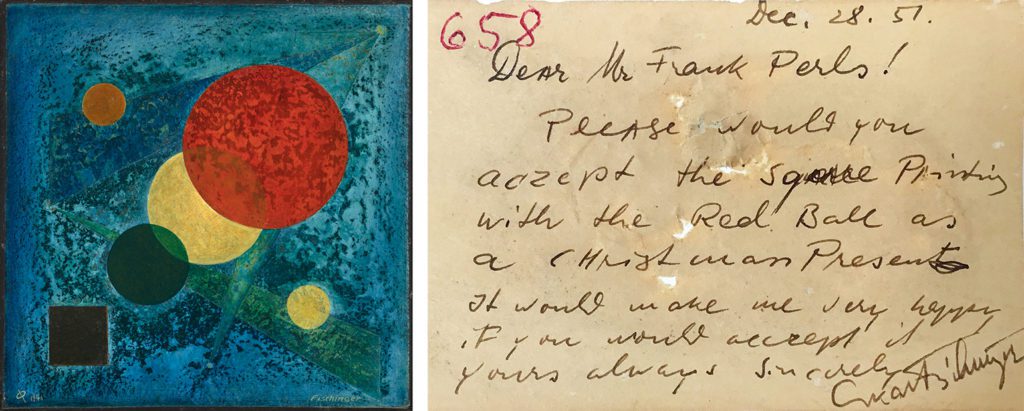 Fischinger
658
Dec. 28. 51.
Dear Mr Frank Perls!
Please would you
aczept the Sqare Painting
with the Red Ball as
a CHristman Present
It would make me very heppy
if you would aczept it
yours always sincerely
Oskar Fischinger